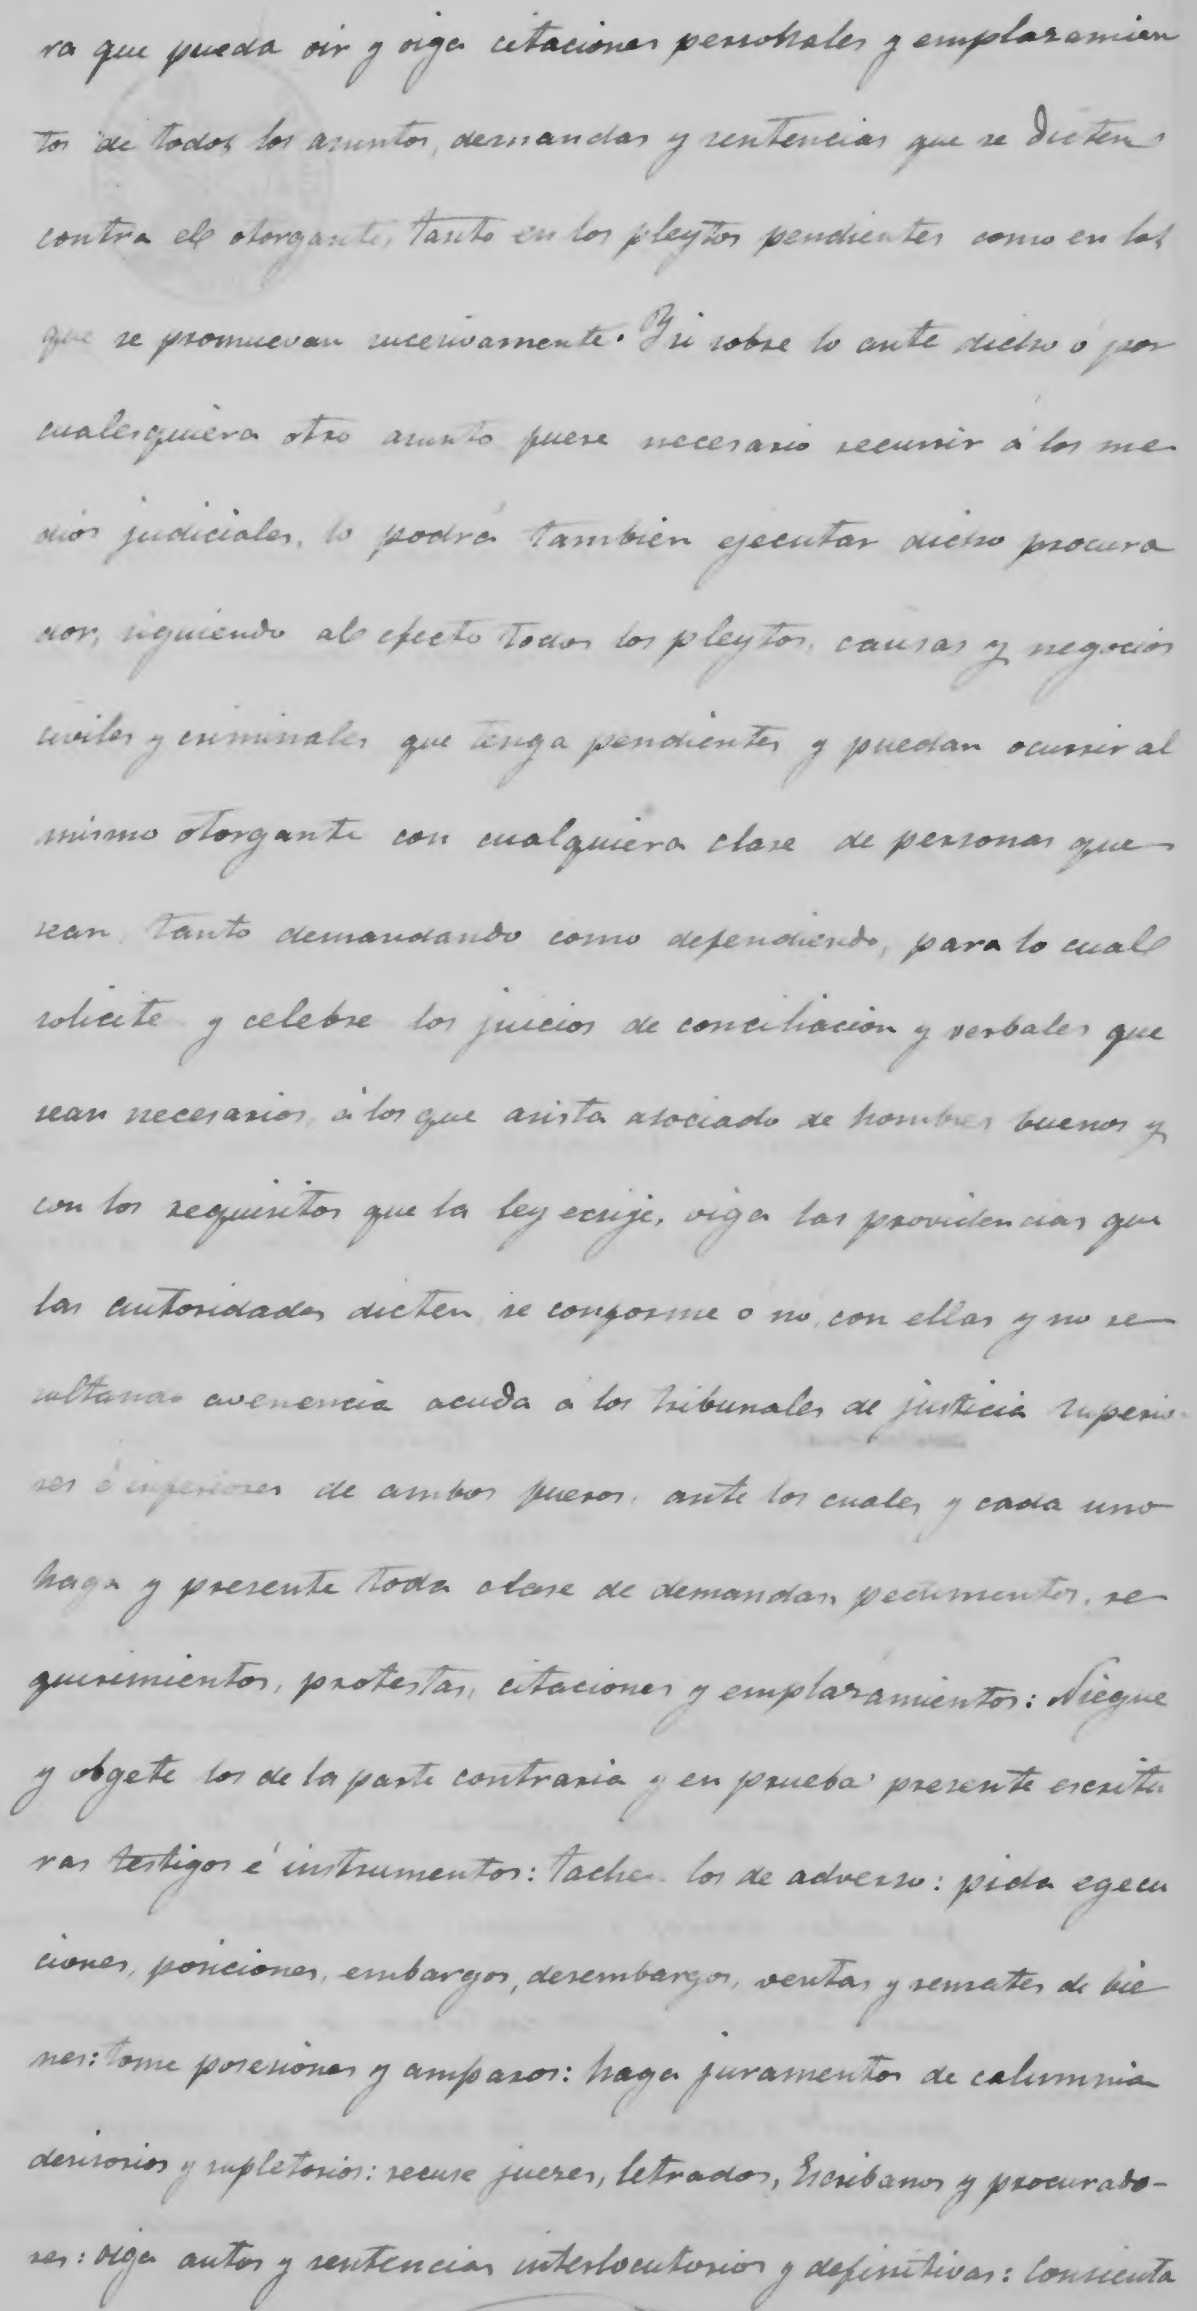 ra que pueda oir y oiga citaciones personales y emplazamien
tos de todos los asuntos, demandas y sentencias que se dicten
contra el otorgante, tanto en los pleytos pendientes como en los
que se promuevan sucesivamente. Y si sobre lo ante dicho ó por
cualesquiera otro asunto fuese necesario recurrir á los me
dios judiciales, lo podrá tambien ejecutar dicho procura
dor, siguiendo al efecto todos los pleytos, causas y negocios
civiles y criminales que tenga pendientes y puedan ocurrir al
mismo otorgante con cualquiera clase de personas que
sean, tanto demandando como defendiendo, para lo cual
solicite y celebre los juicios de conciliacion y verbales que
sean necesarios, á los que asista asociado de hombres buenos y
con los requisitos que la ley ecsije, oiga las providencias que
las autoridades dicten, se conforme o no, con ellas y no re
sultando avenencia acuda á los tribunales de justicia superio
res é inferiores de ambos fueros, ante los cuales y cada uno
haga y presente toda clase de demandas, pedimentos, re
querimientos, protestas, citaciones y emplazamientos: Niegue
y obgete los de la parte contraria y en prueba presente escritu
ras testigos é instrumentos: tache los de adverso: pida egecu
ciones, posiciones, embargos, desembargos, ventas y remates de bie
nes: tome posesiones y amparos: haga juramentos de calumnia
desisorios y supletorios: recuse jueses, letrados, Escribanos y procurado-
res: oiga autos y sentencias interlocutorios y definitivas: consienta